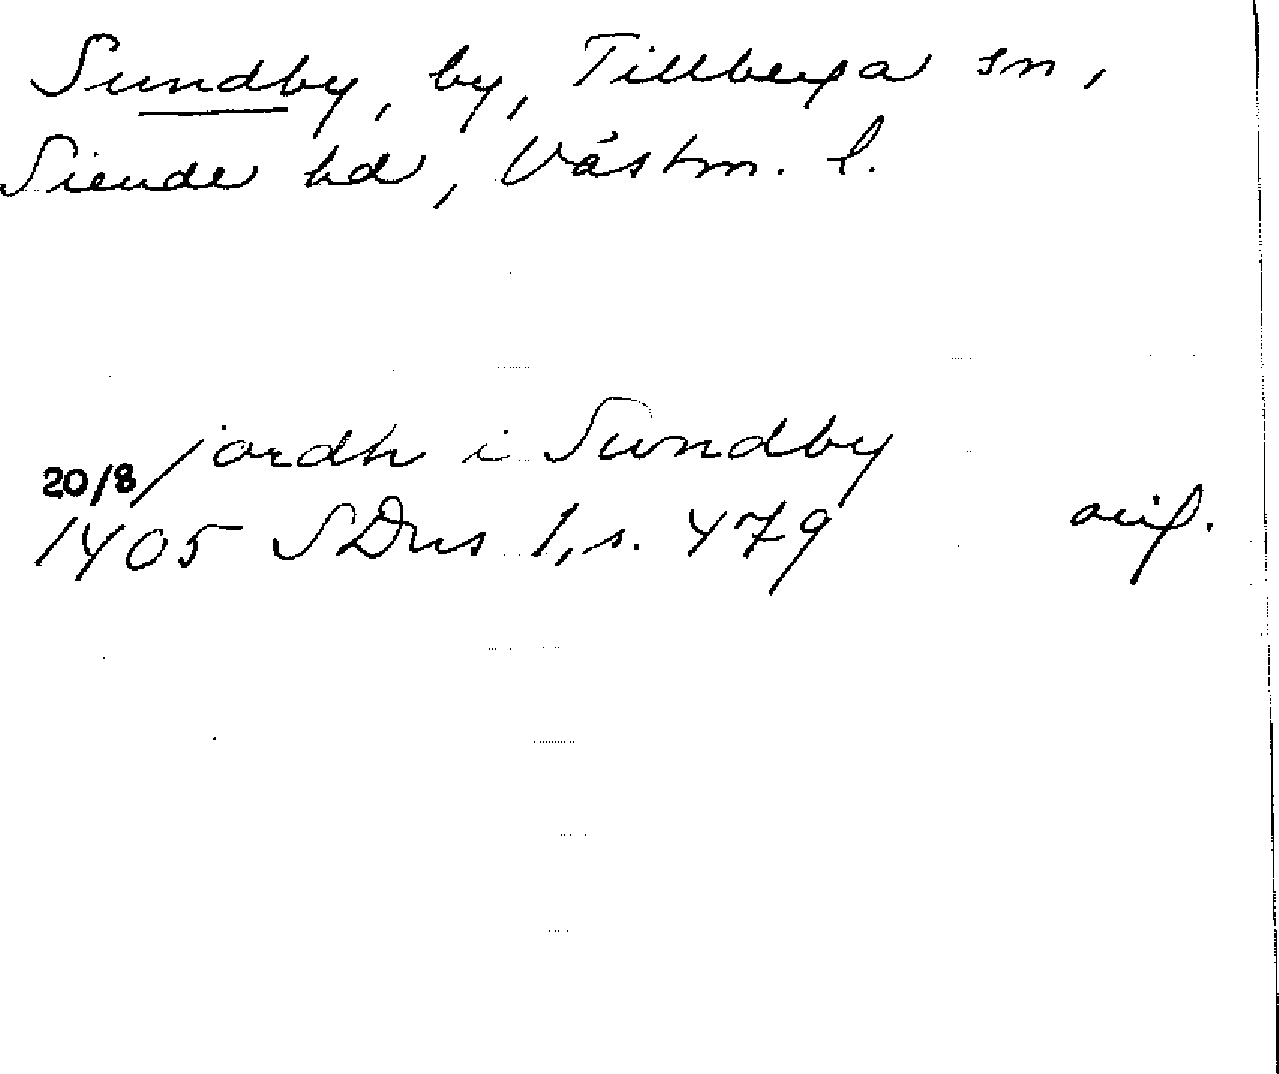 Sundby, by, Tillberga sn,
Siende hd, Västm. l.
jordh i Sundby
20/8
1405 SDns 1, s. 479 avif.